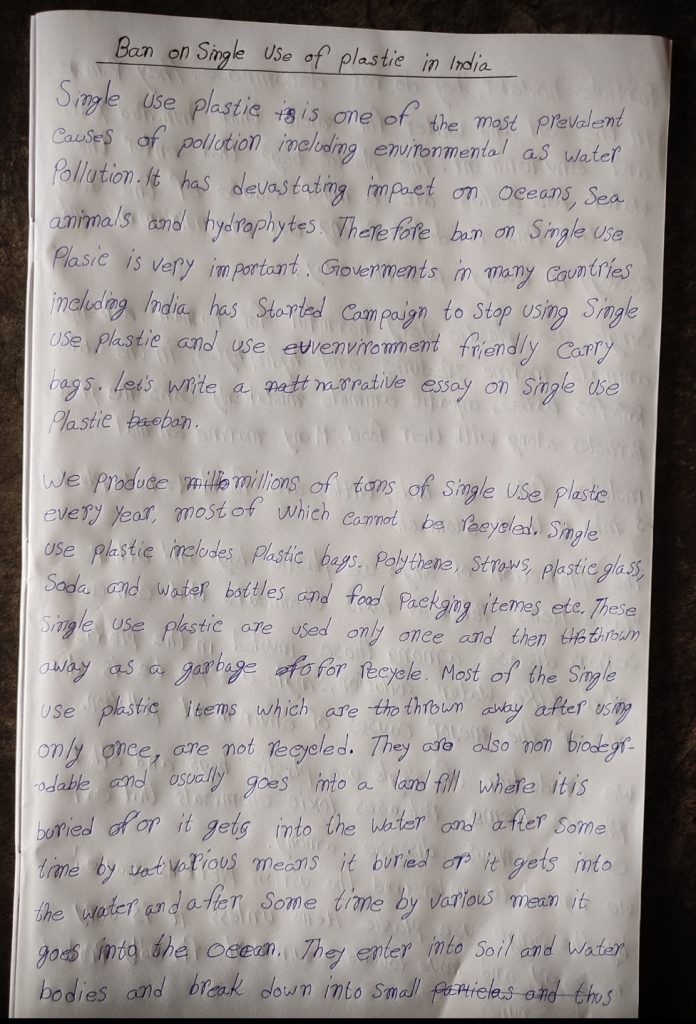 Ban on Single Use of plastic in India
Single use plastic is is one of the most prevalent
Causes of pollution including environmental as water
Pollution. It has devastating impact on oceans, Sea
animals and hydrophytes. Therefore ban on Single Use
Plasic is very important. Goverments in many Countries
including India has Started Campaign to Stop using Single
use plastic and use envenvironment friendly Carry
bags. Let's write a natt narrative essay on Single Use
Plastic baoban.
We Produce millo millions of tons of Single Use plastic
every year, most of which cannot be recycled. Single
use plastic includes Plastic bags. Polythene, Straws, plastic glass,
Soda and water bottles and food Packging itemes etc. These
Single use plastic are used only once and then tho thrown
away as a garbage ofo for recycle. Most of the Single
use plastic items which are tho thrown away after using
only once, are not recycled. They are also non biodegr-
-adable and usually goes into a landfill where it is
buried of or it gets into the water and after some
time by vat various means it buried or it gets into
the water and after Some time by various mean it
goes into the ocean. They enter into Soil and Water
bodies and break down into Small particles and thus